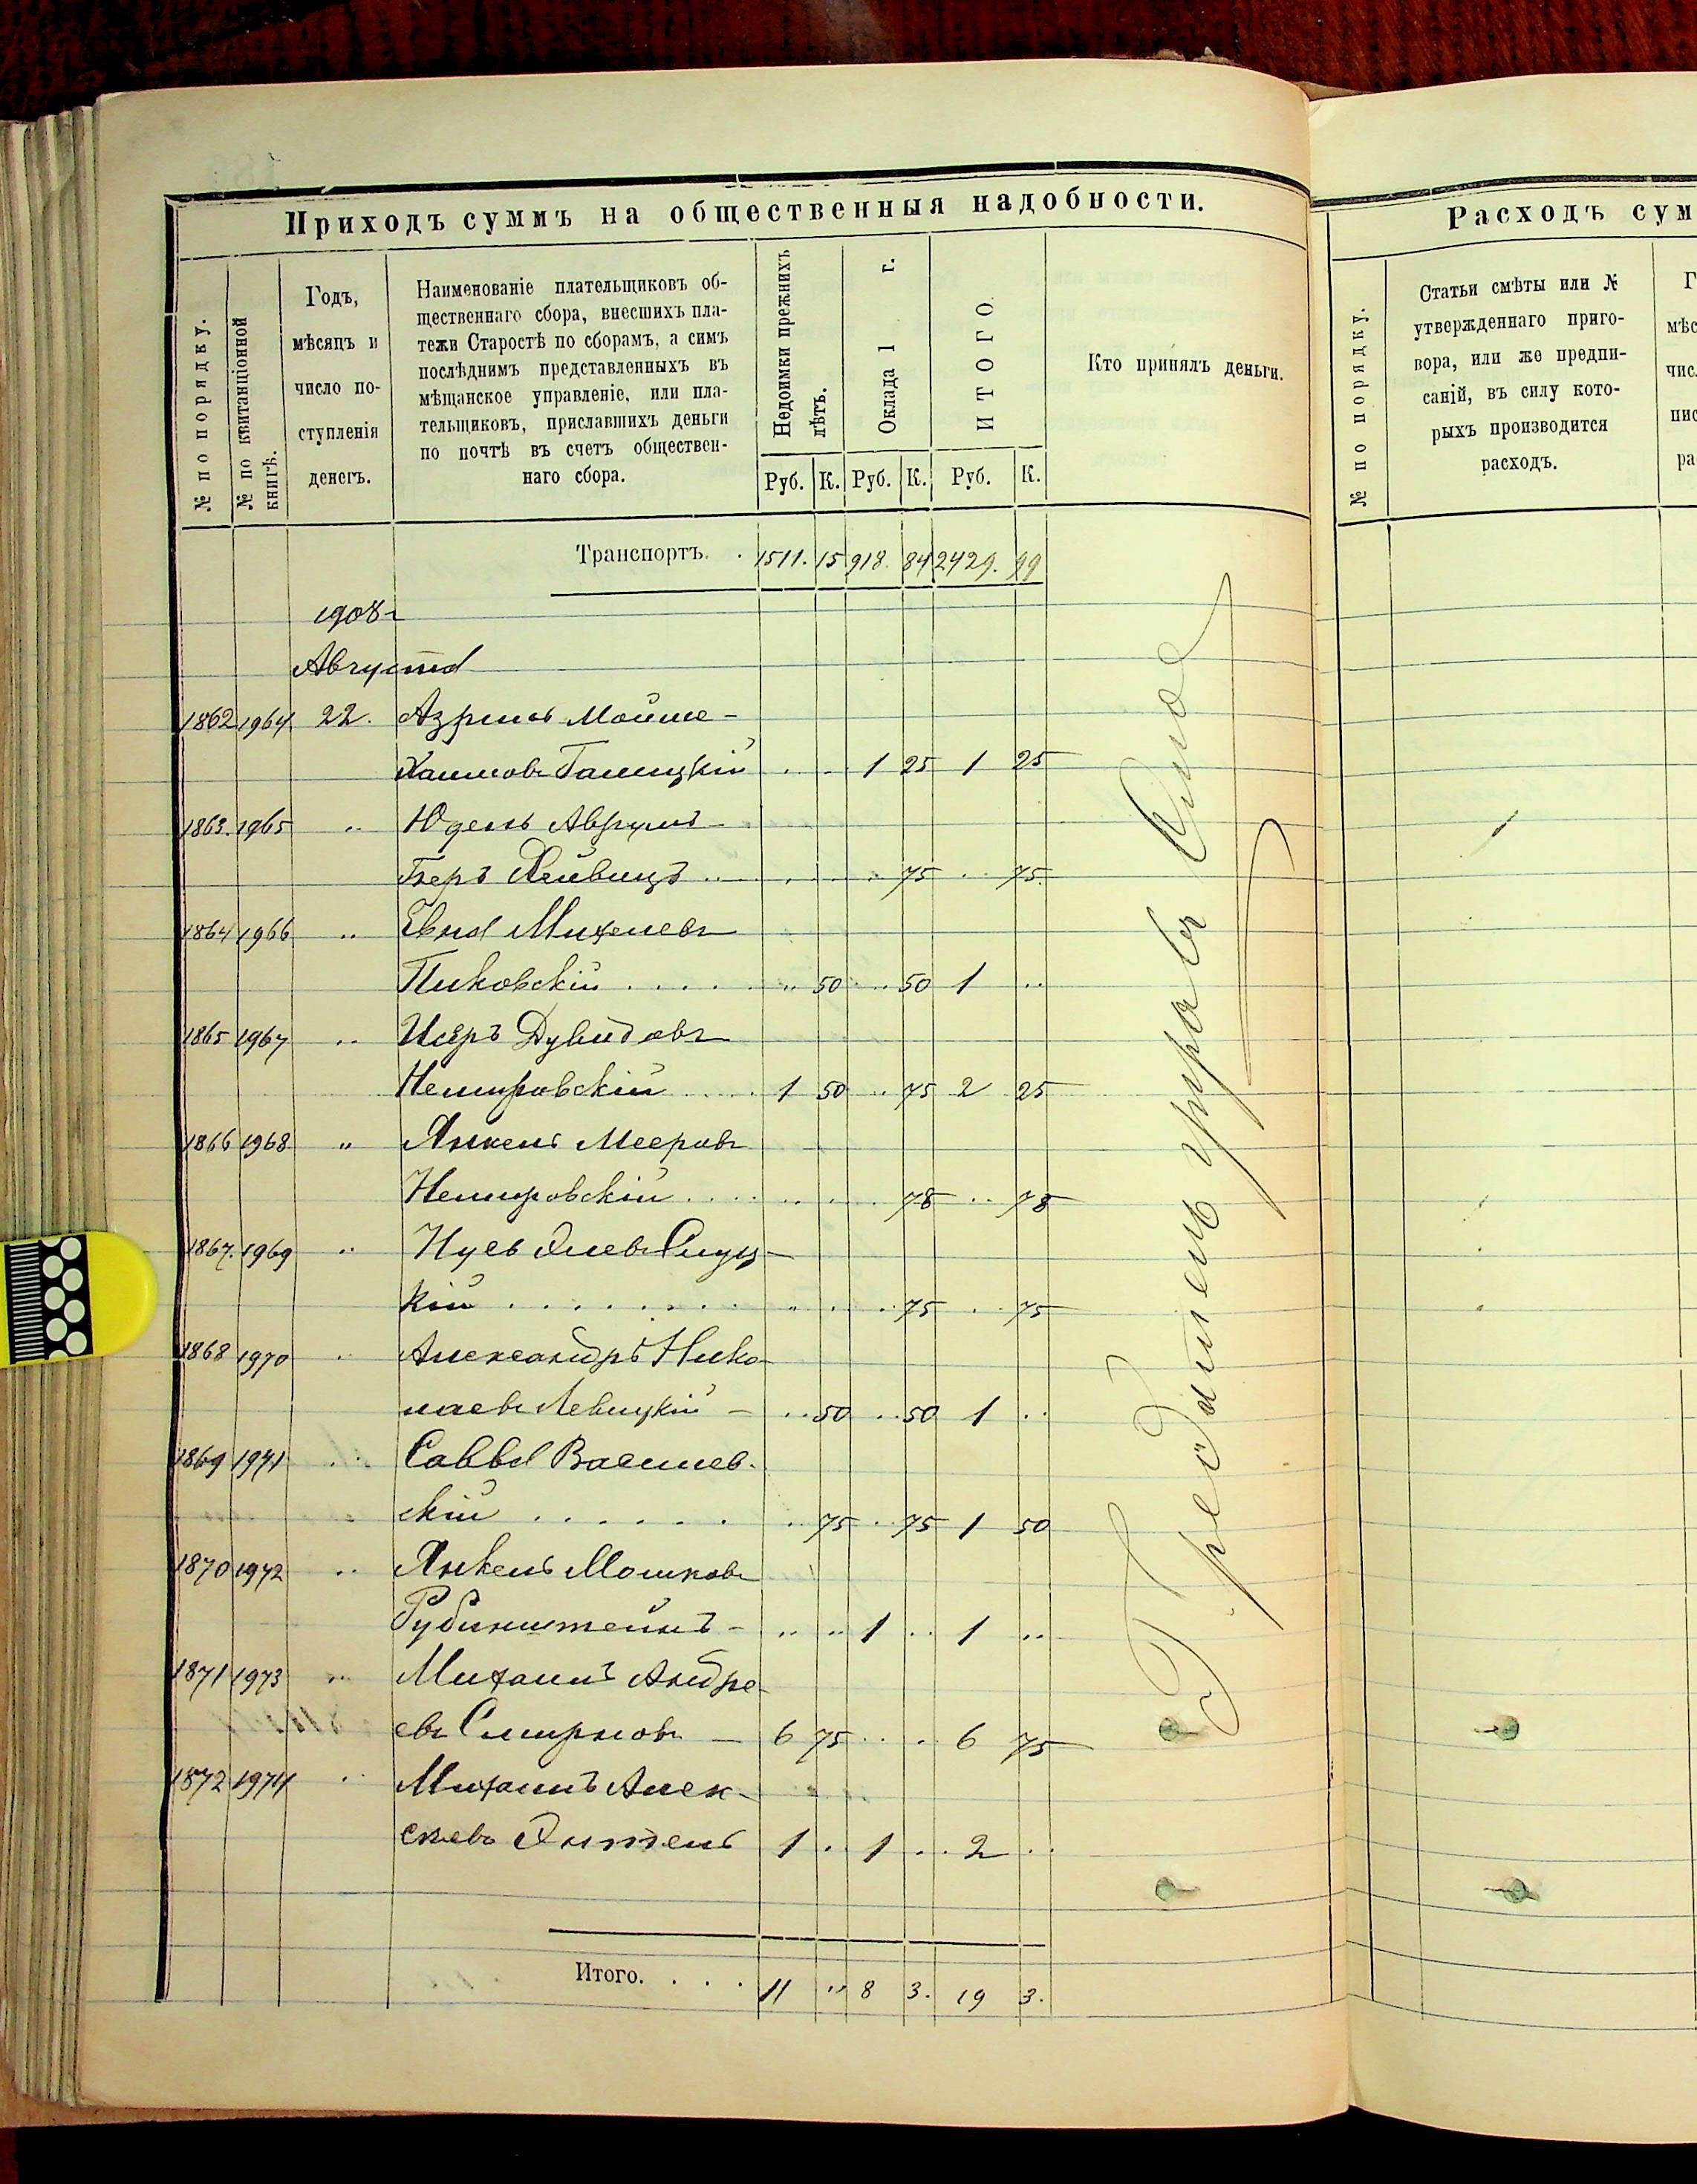 Приходъ суммъ на общественныя надобности.
№ по порядку.
№ по квитанціонной книгѣ.
Годъ,
мѣсяцъ и
число по-
ступленія
денегъ.
Наименованіе плательщиковъ об-
щественнаго сбора, внесшихъ пла-
тежи Старостѣ по сборамъ, а симъ
послѣднимъ представленныхъ въ
мѣщанское управленіе, или пла-
тельщиковъ, приславшихъ деньги
по почтѣ въ счетъ обществен-
наго сбора.
Недоимки прежнихъ лѣтъ.
Оклада 1 г.
ИТОГО.
Кто принялъ деньги.
Руб. К. Руб. К. Руб. К.
Транспортъ. . 1511. 15 918. 84 2429. 99
1908 г
Августа
1862 1964 22. Азриль Мойше-
Хаимовъ Галицкій 1 25 1 25
1863. 1965 " Юдель Аврумъ
Беръ Лейвицъ 75 75.
1864 1966 " Евна Михелевъ
Пиковскій . . . . " 50 " 50 1 "
1865 1967 " Исеръ Дувидовъ
Немировскій 1 50 " 75 2 25
1866 1968 " Янкель Мееровъ
Немировскій . . . . 78 " 78
1867. 1969 " Нусь Слуц-
кій . . . . . . . 75 75
1868 1970 " Александръ Нико-
лаевъ Левицкій – " 50 " 50 1 "
1869 1971 " Савва Василев-
скій . . . . . . " 75 " 75 1 50
1870 1972 " Янкель Мошковъ
Рубинштейнъ – " " 1 " 1 "
1871 1973 " Михаилъ Андре-
евъ Смирновъ – 6 75 . . 6 75
1872 1974 " Михаилъ Алек-
сѣевъ 1 " 1 " 2 "
Итого. . . . 11 " 8 3. 19 3.
Предитець управы
Расходъ сум
№ по порядку.
Статьи смѣты или №
утвержденнаго приго-
вора, или же предпи-
саній, въ силу кото-
рыхъ производится
расходъ.
Г
мѣс
чис.
пис
ра